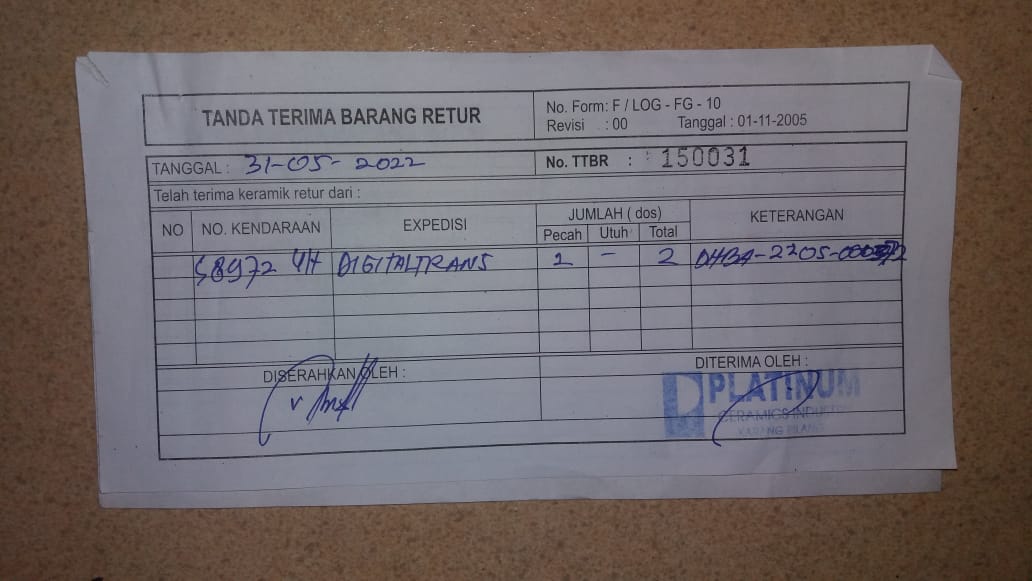 TANDA TERIMA BARANG RETUR
No. Form: F / LOG - FG - 10
Revisi : 00 Tanggal : 01-11-2005
TANGGAL : 31-05-2022
No. TTBR : 150031
Telah terima keramik retur dari :
NO NO. KENDARAAN EXPEDISI JUMLAH ( dos) KETERANGAN
Pecah Utuh Total
S8972 UH DIGITALTRANS 2 - 2
DISERAHKAN OLEH : DITERIMA OLEH :
PLATINUM
CERAMICS INDUSTRY
KARANG PILANG